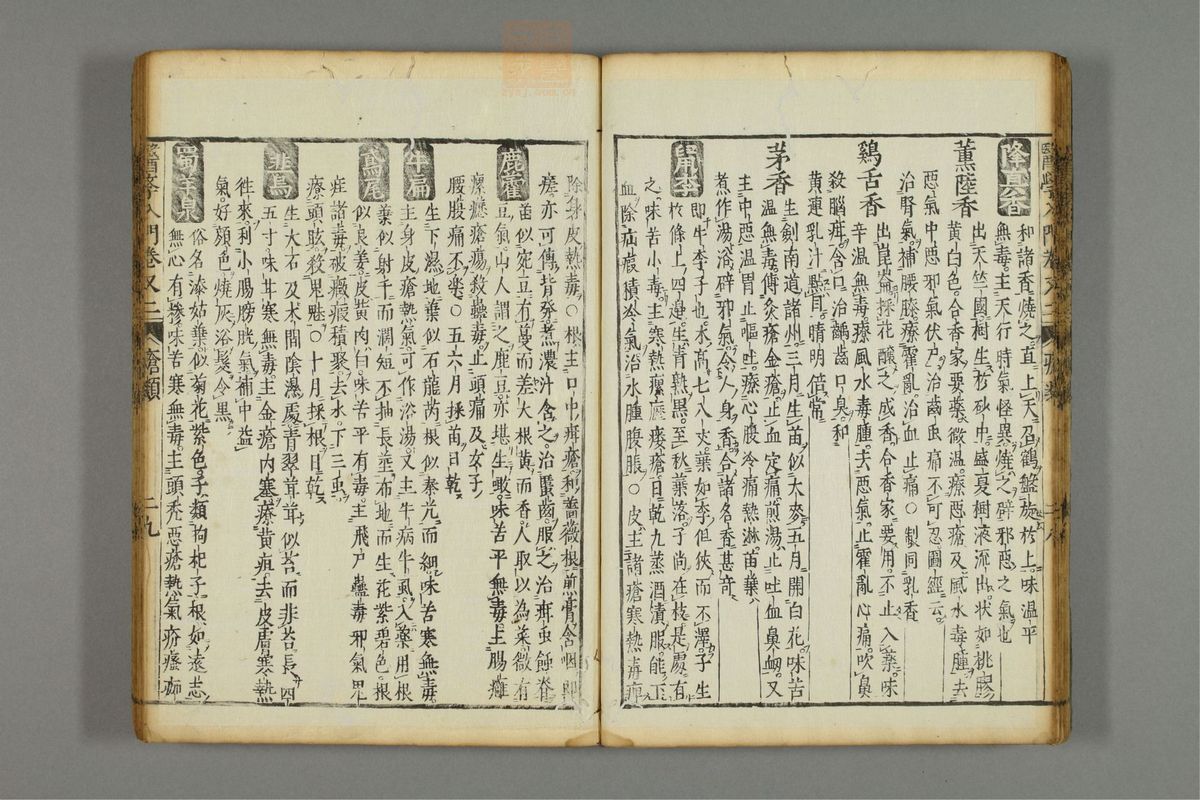 降真香
和諸香燒之直上天召鶴盤旋於上味温平
無毒主天行時氣怪異燒之辟邪惡之氣也
薰陸香
出天竺國樹生於砂中盛夏樹液流出狀如桃膠
黄白色合香家要藥微温療惡瘡及風水毒腫去
惡氣中惡邪氣伏尸治齒虫痛不可忍圖經云
治腎氣補腰膝療霍亂治血止痛〇製同乳香
鷄舌香
出崑崙採花釀之成香合香家要用不止入藥味
辛温無毒療風水毒腫去惡氣止霍亂心痛吹鼻
殺腦疳含口治齲齒口臭和
黄連乳汁㸃目晴明倍常
茅香
生劍南道諸州三月生苗似大麥五月開白花味苦
温無毒傅灸瘡金瘡止血定痛煎湯止吐血鼻衂又
主中惡温胃止嘔吐療心腹冷痛熱淋苗葉
煮作湯浴辟邪氣令人身香合諸名香甚奇
鼠李
即牛李子也木高七八丈葉如李但狹而不澤子生
於條上四邊生青熟黒至秋葉落子尚在枝是處有
之味苦小毒主寒熱瘰癧瘡日乾九蒸酒漬服能下
血除疝瘕積冷氣治水腫腹脹〇皮主諸瘡寒熱毒痹
除身皮熱毒〇根主口中疳瘡利薔薇根煎膏含咽
瘥亦可傳背發煮濃汁含之治䘌齒服之治疳虫蝕脊
鹿藿
苗似宛豆有蔓而差大根黄而香人取以為菜微有
豆氣山人謂之鹿豆亦堪生啖味苦平無毒主腸癰
瘰癧瘡瘍殺蟲毒止頭痛及女子
腰股痛不樂〇五六月採苗日乾
牛扁
生下濕地葉似石龍芮根似秦艽而細味苦寒無毒
主身皮瘡熱氣可作浴湯又主牛病牛虱入藥用根
鳶尾
葉似射千而濶短不抽長莖布地而生花紫碧色根
似良姜皮黄肉白味苦平有毒主飛尸蠱毒邪氣鬼
疰諸毒破癥瘕積聚去水下三虫
療頭眩殺鬼魅〇十月採根日乾
生大石及木間陰濕處青翠茸茸似苔而非苔長四
五寸味甘寒無毒主金瘡内塞療黄疸去皮膚寒熱
徃來利小腸膀胱氣補中益
氣好顔色燒灰浴髪令黒
蜀羊泉
俗名漆姑葉似菊花紫色子類枸杞子根如遠志
無心有糝味苦寒無毒主頭禿惡瘡熱氣疥瘙痂
醫學入門卷又二 瘡類 二九